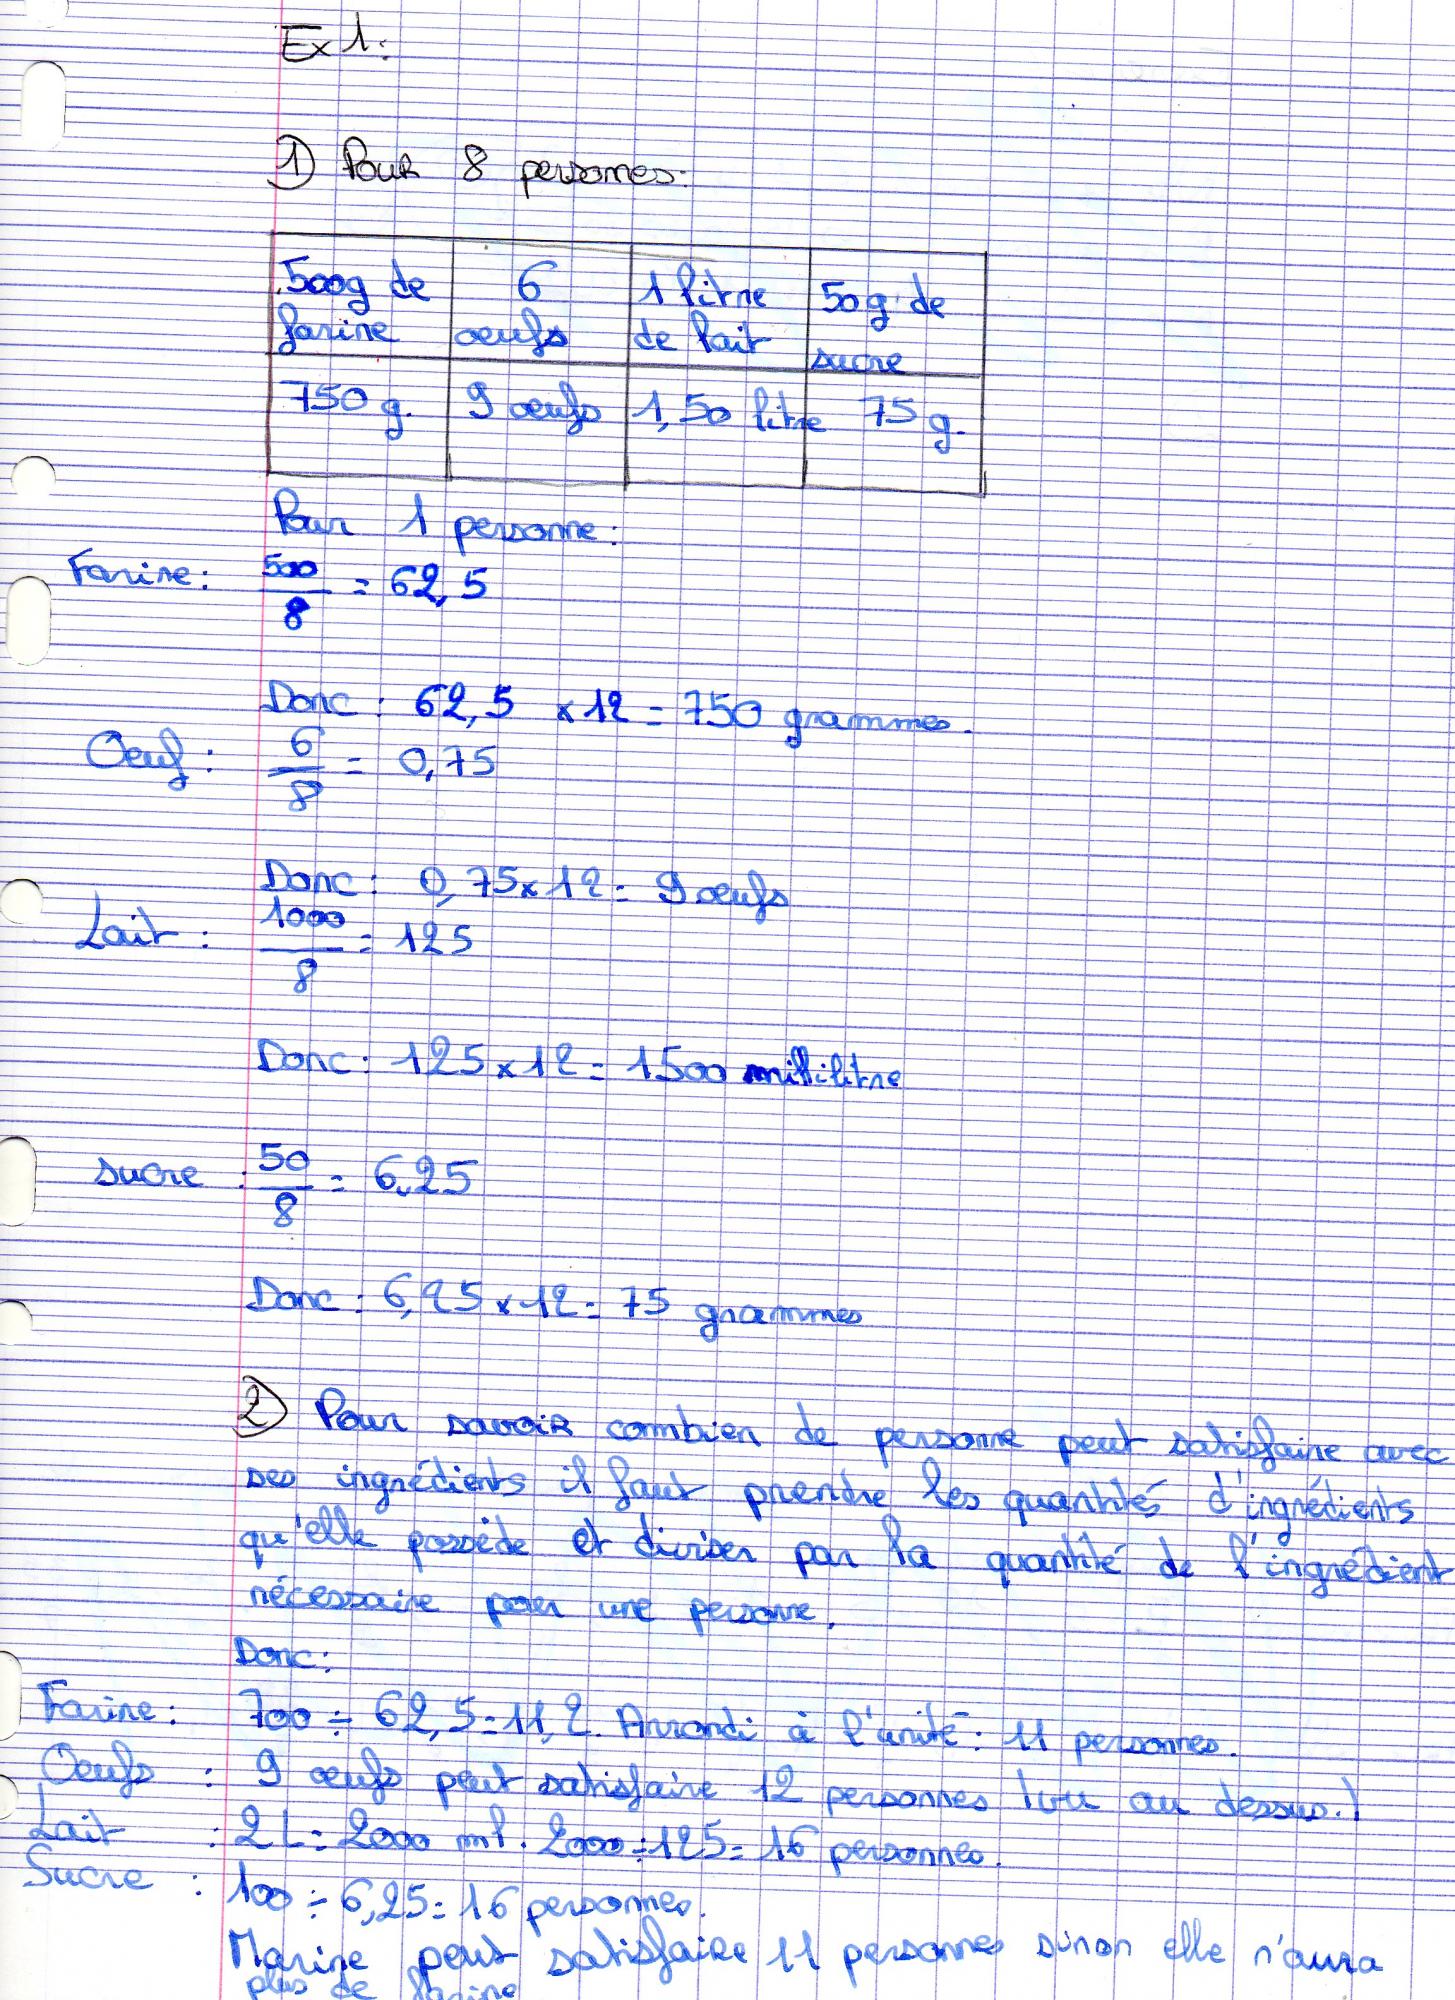 Ex 1:
1) Pour 8 personnes:
500g de farine | 6 oeufs | 1 litre de lait | 50g de sucre
750 g. | 9 oeufs | 1,50 litre | 75 g.
Pour 1 personne:
Farine: 500/8 = 62,5
Donc: 62,5 x 12 = 750 grammes.
Oeuf: 6/8 = 0,75
Donc: 0,75 x 12 = 9 oeufs
Lait: 1000/8 = 125
Donc: 125 x 12 = 1500 millilitre
sucre: 50/8 = 6,25
Donc: 6,25 x 12 = 75 grammes
2) Pour savoir combien de personne peut satisfaire avec
ses ingrédients il faut prendre les quantités d'ingrédients
qu'elle possède et diviser par la quantité de l'ingrédient
nécessaire pour une personne.
Donc:
Farine: 700 ÷ 62,5 = 11,2. Arrondi à l'unité: 11 personnes.
Oeufs: 9 oeufs peut satisfaire 12 personnes (vu au dessus.)
Lait: 2L = 2000 ml. 2000 ÷ 125 = 16 personnes.
Sucre: 100 ÷ 6,25 = 16 personnes.
Marine peut satisfaire 11 personnes sinon elle n'aura
plus de farine